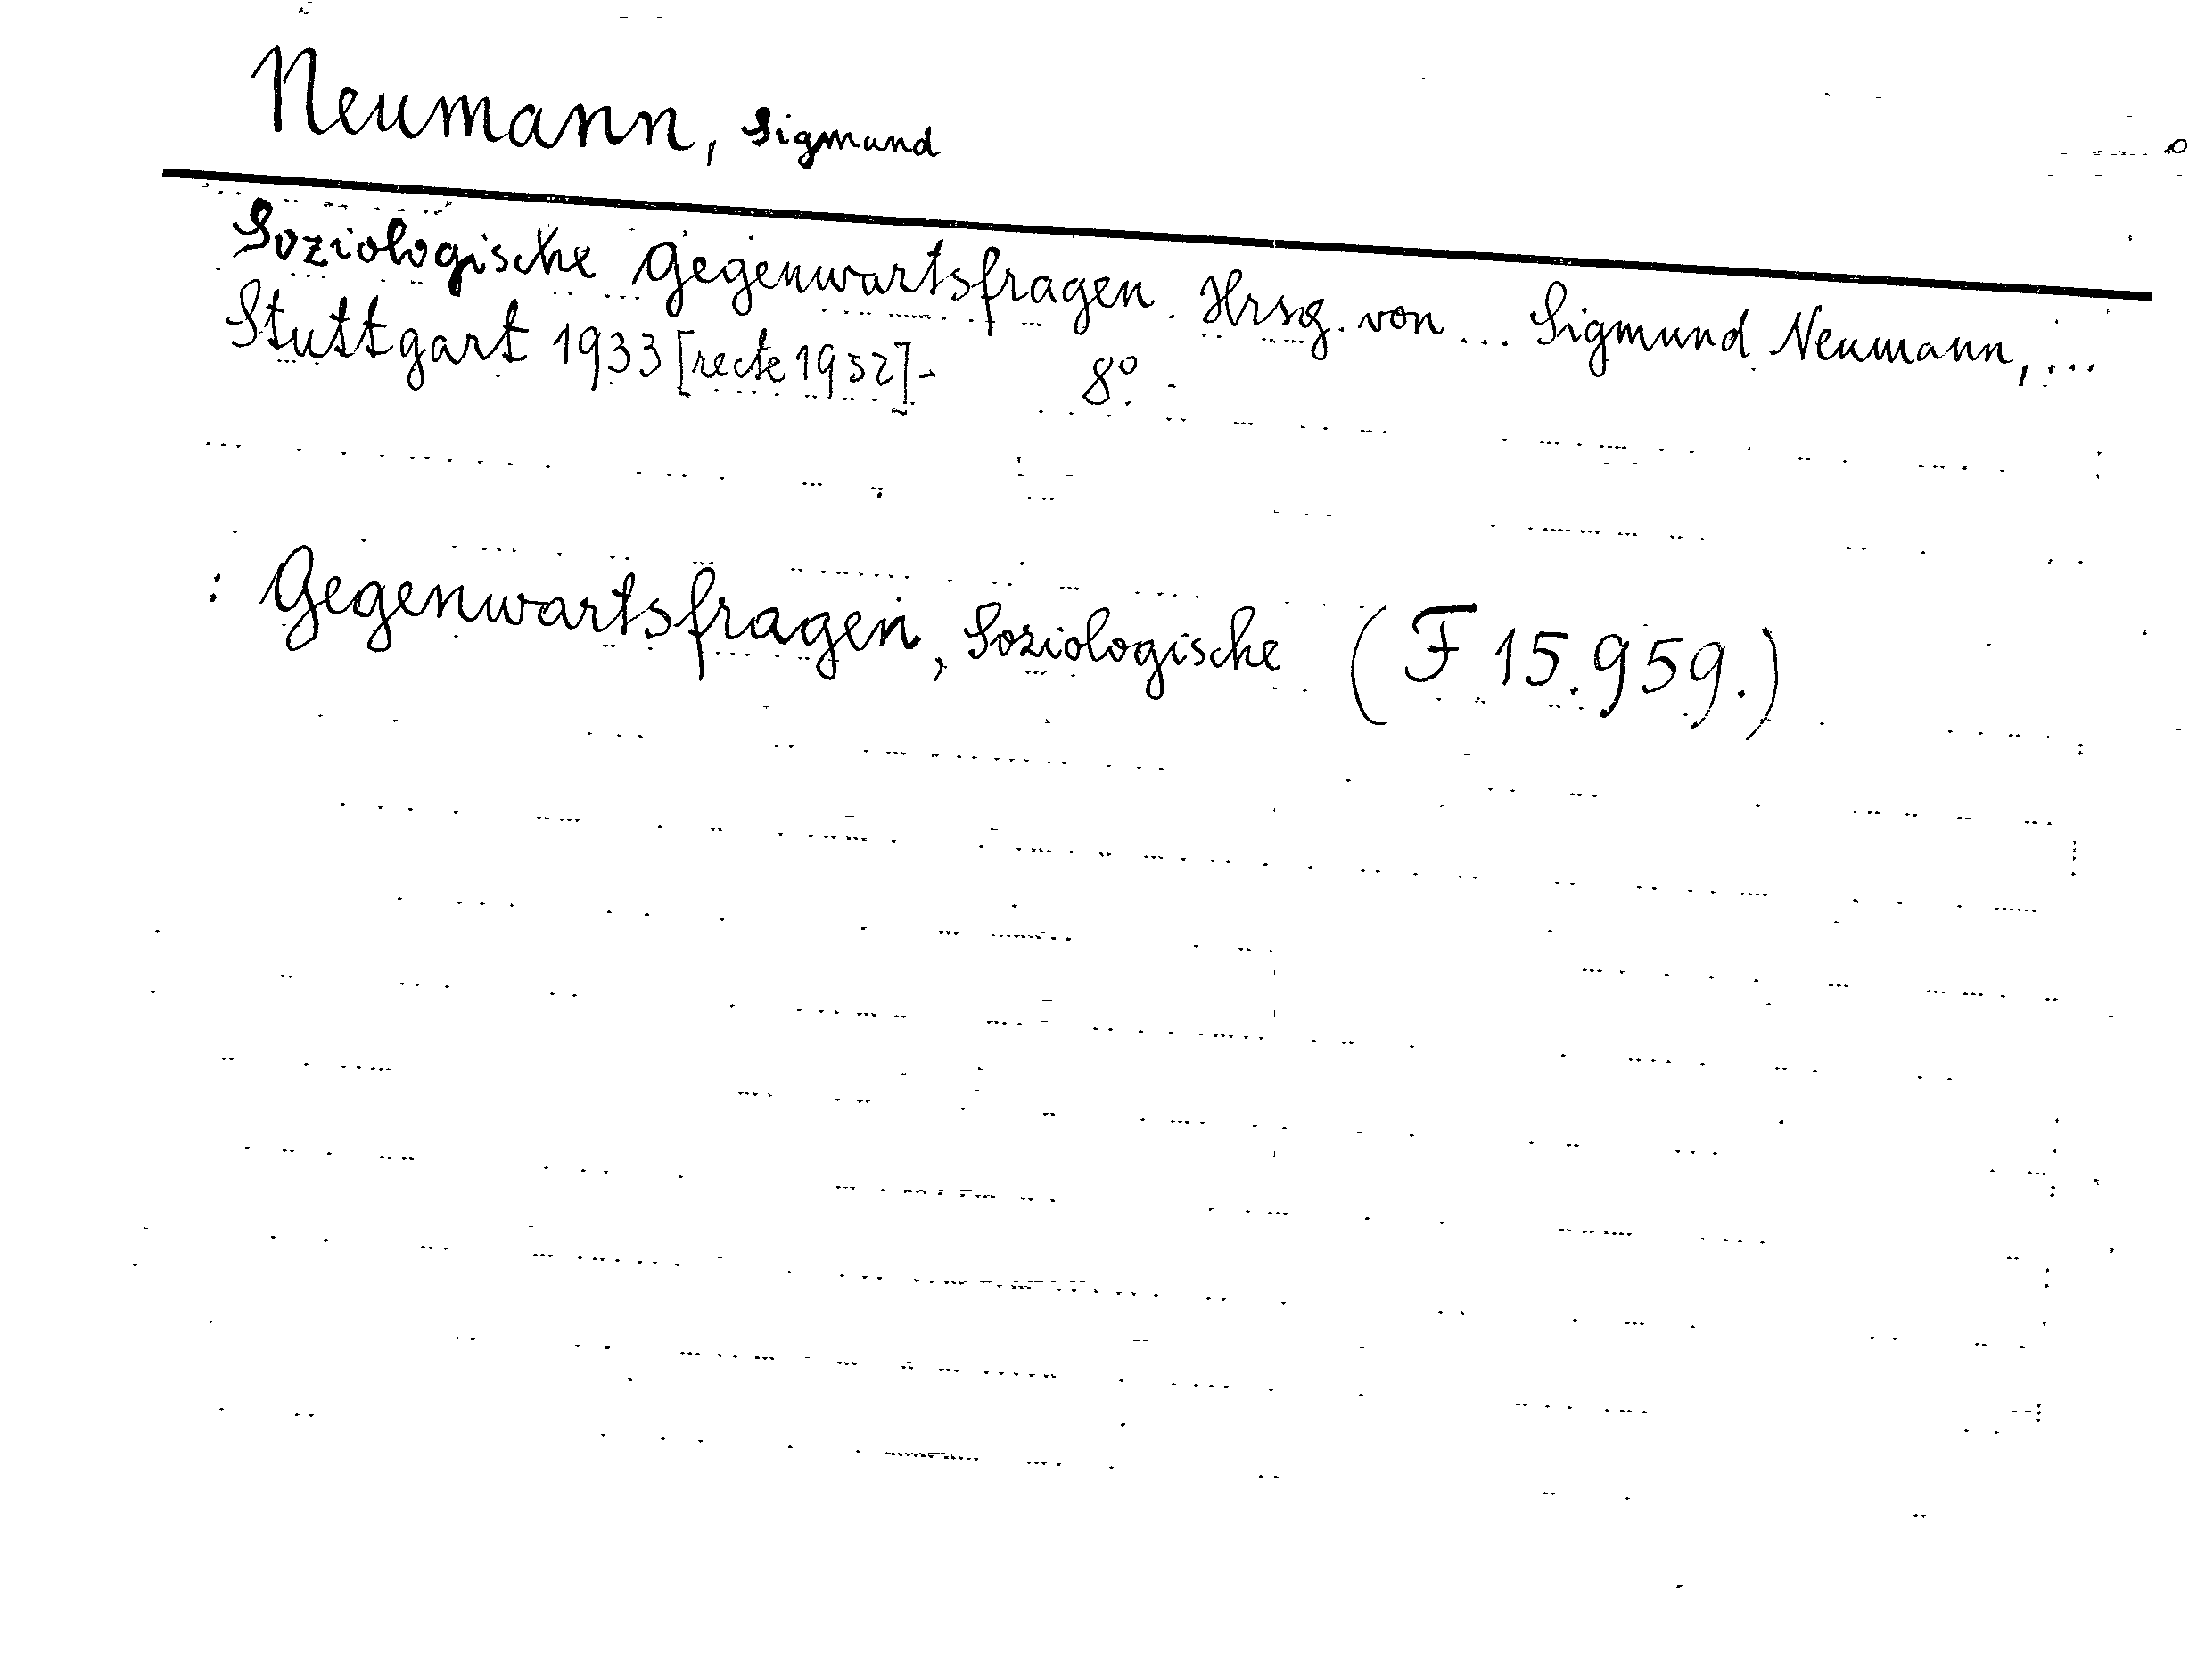 Neumann, Sigmund
Soziologische Gegenwartsfragen. Hrsg. von ... Sigmund Neumann, ...
Stuttgart 1933 [recte 1932]- 8°.
: Gegenwartsfragen, Soziologische (F 15.959.)